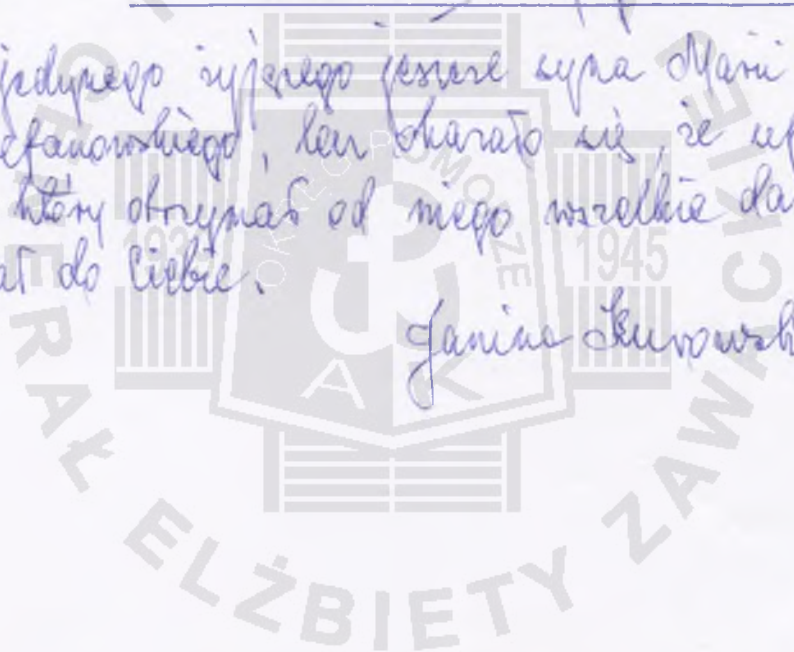 jedynego żyjącego jeszcze syna Marii
efanowskiego, lecz okazało się, że
który otrzymał od niego wszelkie da
ał do Ciebie.
Janina Kurowsk
OKRĘG POMORZE
1939 1945
AK
GENERAŁ ELŻBIETY ZAWACKIEJ